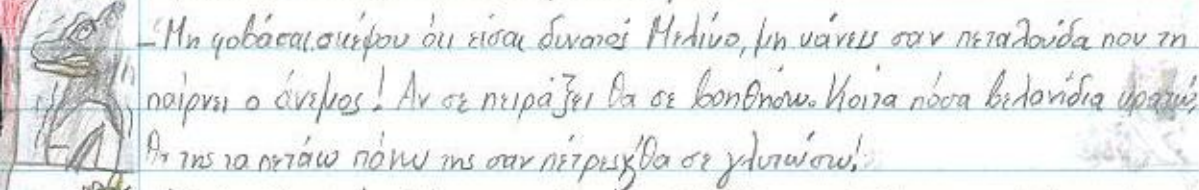 -Μη φοβάσαι, σκέψου ότι είσαι δυνατός Μελίνο, μη κάνεις σαν πεταλούδα που τη
παίρνει ο άνεμος! Αν σε πειράξει θα σε βοηθήσω. Κοίτα πόσα βελανίδια κρατώ,
θα της τα πετάω πάνω της σαν πέτρες, θα σε γλυτώσω!